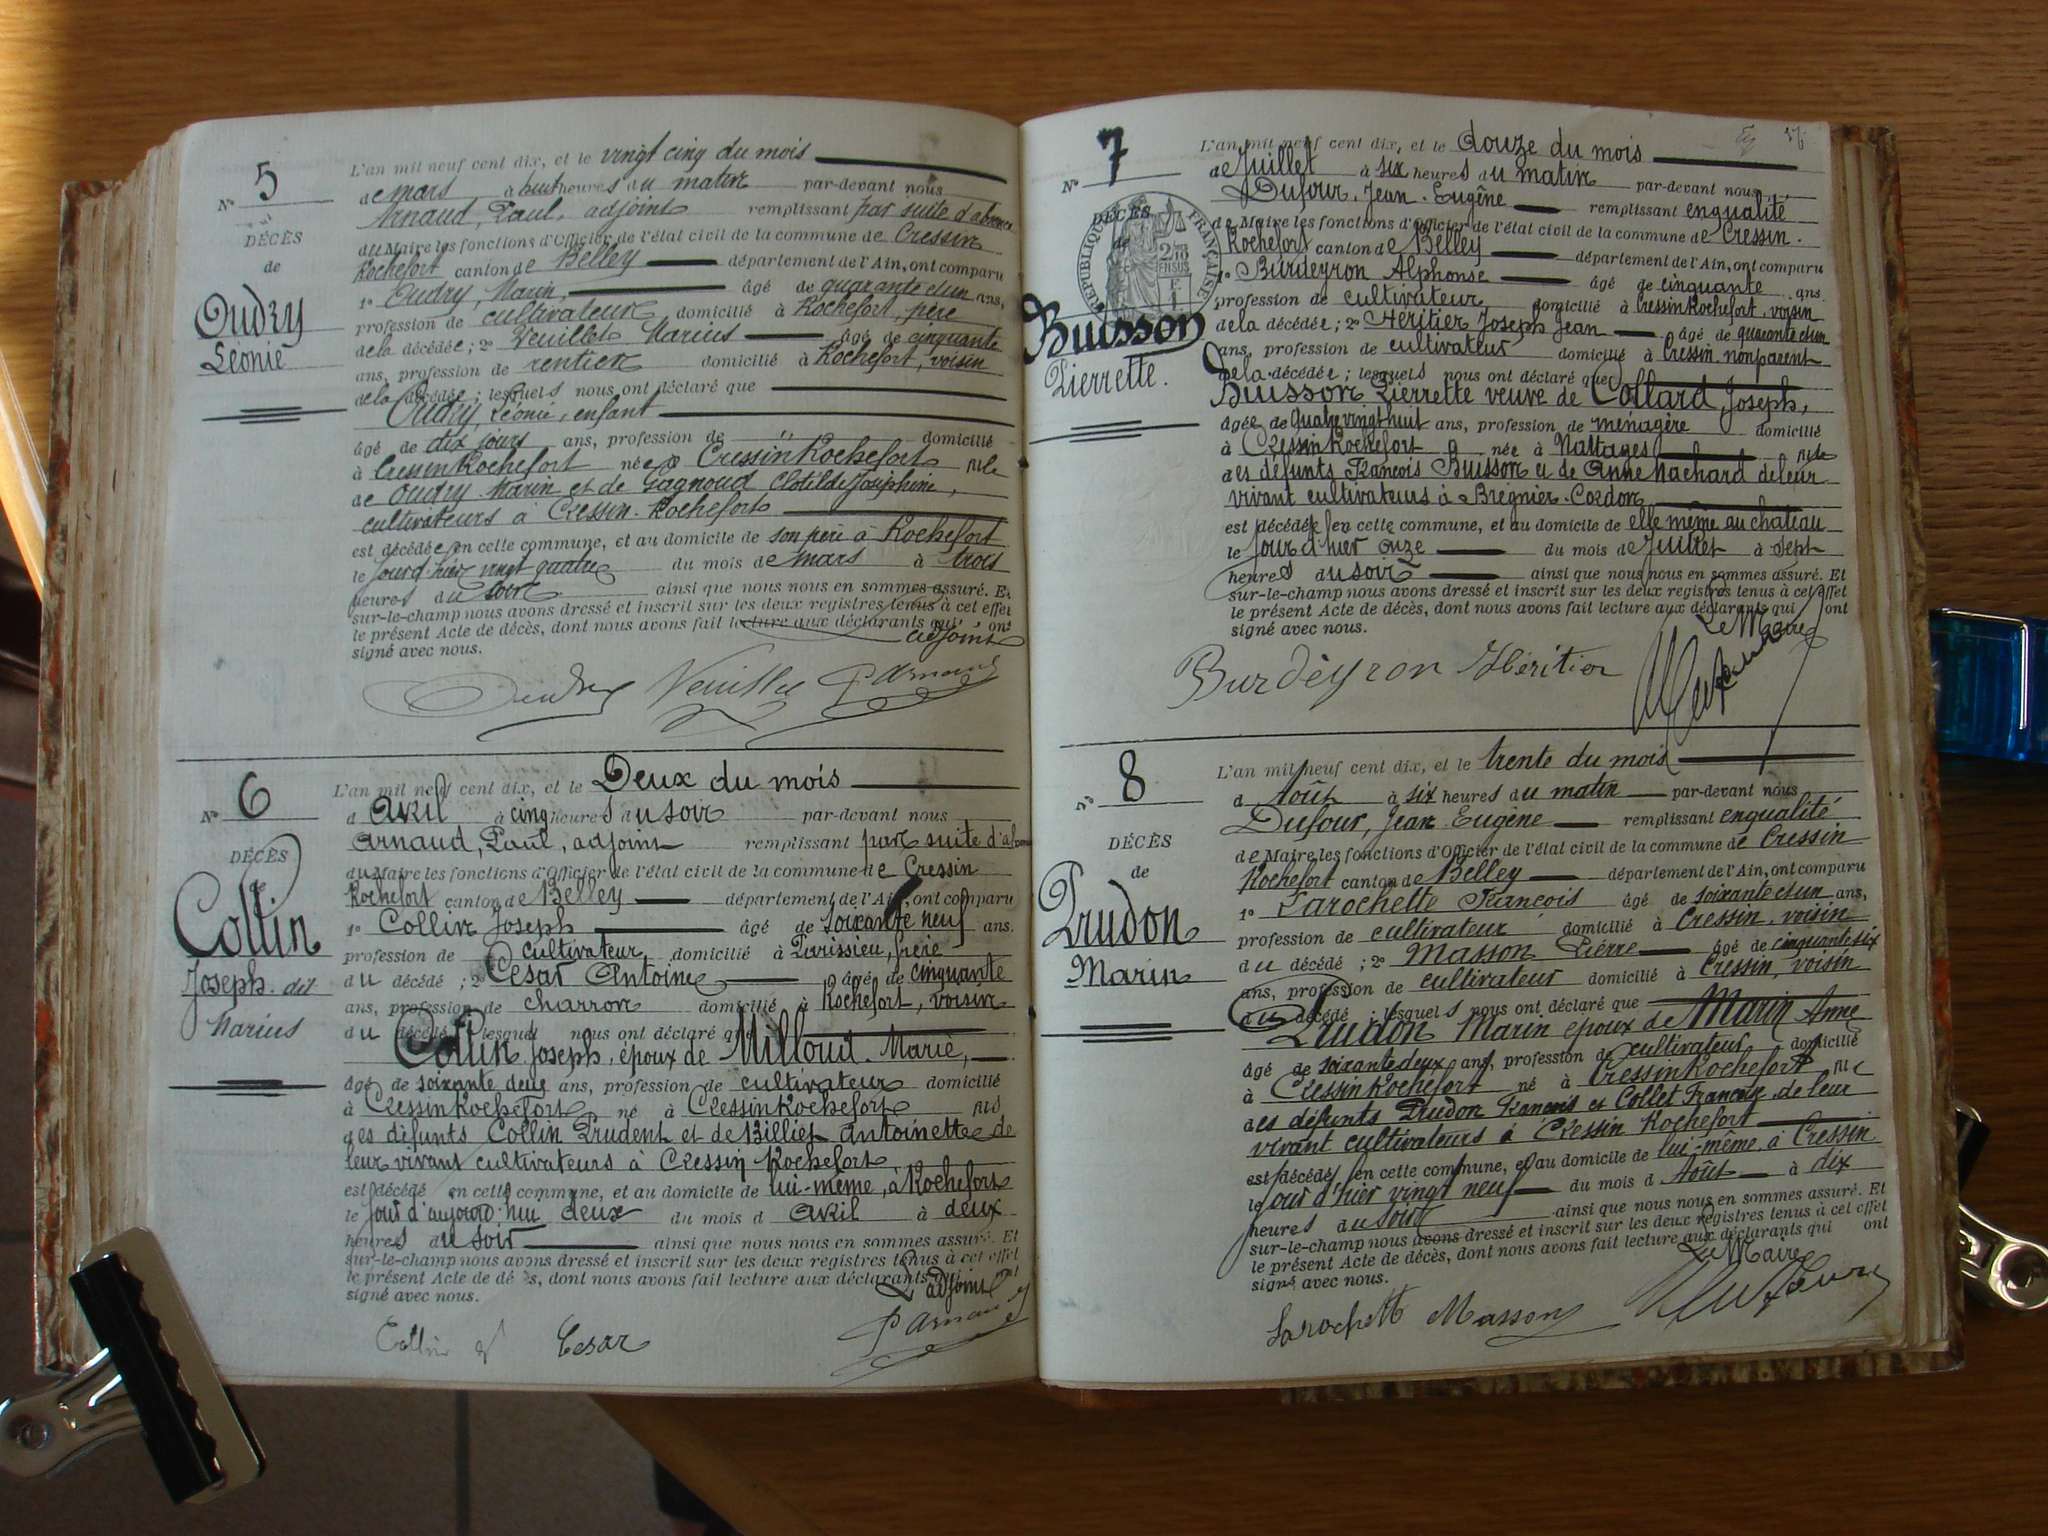 N° 5
DÉCÈS
de
Oudry
Léonie
L'an mil neuf cent dix, et le vingt cinq du mois
de mars à huit heures du matin par-devant nous
Arnaud, Paul, adjoint remplissant par suite d'absence
du Maire les fonctions d'Officier de l'état civil de la commune de Cressin
Rochefort canton de Belley département de l'Ain, ont comparu
1° Oudry, Marin, âgé de quarante et un ans,
profession de cultivateur domicilié à Rochefort, père
de la décédée; 2° Veuillet Marius âgé de cinquante
ans, profession de rentier domicilié à Rochefort, voisin
de la décédée; lesquels nous ont déclaré que
Oudry, Léonie, enfant
âgé de dix jours ans, profession de " domicilié
à Cressin Rochefort née à Cressin Rochefort fille
de Oudry Marin et de Gagnoud Clotilde Joséphine,
cultivateurs à Cressin-Rochefort
est décédée en cette commune, et au domicile de son père à Rochefort
le jour d'hier vingt quatre du mois de mars à trois
heures du soir ainsi que nous nous en sommes assuré. Et
sur-le-champ nous avons dressé et inscrit sur les deux registres tenus à cet effet
le présent Acte de décès, dont nous avons fait lecture aux déclarants qui ont
signé avec nous. adjoint
Oudry Veuillet P Arnaud
N° 6
DÉCÈS
de
Collin
Joseph dit
Marius
L'an mil neuf cent dix, et le Deux du mois
d avril à cinq heures du soir par-devant nous
Arnaud, Paul, adjoint remplissant par suite d'absence
du Maire les fonctions d'Officier de l'état civil de la commune de Cressin
Rochefort canton de Belley département de l'Ain, ont comparu
1° Collin Joseph âgé de soixante neuf ans.
profession de cultivateur domicilié à Parissieu, frère
du décédé; 2° César Antoine âgé de cinquante
ans, profession de charron domicilié à Rochefort, voisin
du décédé lesquel nous ont déclaré que
Collin Joseph, époux de Millond Marie,
âgé de soixante deux ans, profession de cultivateur domicilié
à Cressin Rochefort né à Cressin Rochefort fils
des défunts Collin Prudent et de Billiet Antoinette de
leur vivant cultivateurs à Cressin-Rochefort
est décédé en cette commune, et au domicile de lui-même, à Rochefort
le jour d'aujourd'hui deux du mois d avril à deux
heures du soir ainsi que nous nous en sommes assuré. Et
sur-le-champ nous avons dressé et inscrit sur les deux registres tenus à cet effet
le présent Acte de décès, dont nous avons fait lecture aux déclarants qui ont
signé avec nous. L'adjoint
Collin J César P Arnaud
N° 7
DÉCÈS
de
RÉPUBLIQUE FRANÇAISE
2/10 EN SUS
Buisson
Pierrette.
L'an mil neuf cent dix, et le douze du mois
de Juillet à six heures du matin par-devant nous
Dufour, Jean-Eugène remplissant en qualité
de Maire les fonctions d'Officier de l'état civil de la commune de Cressin-
Rochefort canton de Belley département de l'Ain, ont comparu
1° Burdeyron Alphonse âgé de cinquante ans.
profession de cultivateur domicilié à Cressin Rochefort, voisin
de la décédée; 2° Héritier Joseph Jean âgé de quarante et un
ans, profession de cultivateur domicilié à Cressin non parent
de la décédée; lesquels nous ont déclaré que
Buisson Pierrette veuve de Collard, Joseph,
âgée de Quatre vingt huit ans, profession de ménagère domicilié
à Cressin Rochefort née à Nattages fille
des défunts François Buisson et de Anne Machard de leur
vivant cultivateurs à Brégnier-Cordon
est décédée en cette commune, et au domicile de elle même au chateau
le jour d'hier onze du mois de Juillet à sept
heures du soir ainsi que nous nous en sommes assuré. Et
sur-le-champ nous avons dressé et inscrit sur les deux registres tenus à cet effet
le présent Acte de décès, dont nous avons fait lecture aux déclarants qui ont
signé avec nous. Le Maire
Burdeyron Héritier
N° 8
DÉCÈS
de
Prudon
Marin
L'an mil neuf cent dix, et le trente du mois
d Août à six heures du matin par-devant nous
Dufour, Jean Eugène remplissant en qualité
de Maire les fonctions d'Officier de l'état civil de la commune de Cressin
Rochefort canton de Belley département de l'Ain, ont comparu
1° Larochette François âgé de soixante et un ans,
profession de cultivateur domicilié à Cressin, voisin
du décédé; 2° Masson Pierre âgé de cinquante six
ans, profession de cultivateur domicilié à Cressin, voisin
du décédé; lesquels nous ont déclaré que
Prudon Marin époux de Marin Anne
âgé de soixante deux ans, profession de cultivateur domicilié
à Cressin Rochefort né à Cressin Rochefort fils
des défunts Prudon François et Collet Françoise de leur
vivant cultivateurs à Cressin Rochefort
est décédé en cette commune, et au domicile de lui-même, à Cressin
le jour d'hier vingt neuf du mois d Août à dix
heures du soir ainsi que nous nous en sommes assuré. Et
sur-le-champ nous avons dressé et inscrit sur les deux registres tenus à cet effet
le présent Acte de décès, dont nous avons fait lecture aux déclarants qui ont
signé avec nous. Le Maire
Larochette Masson Dufour